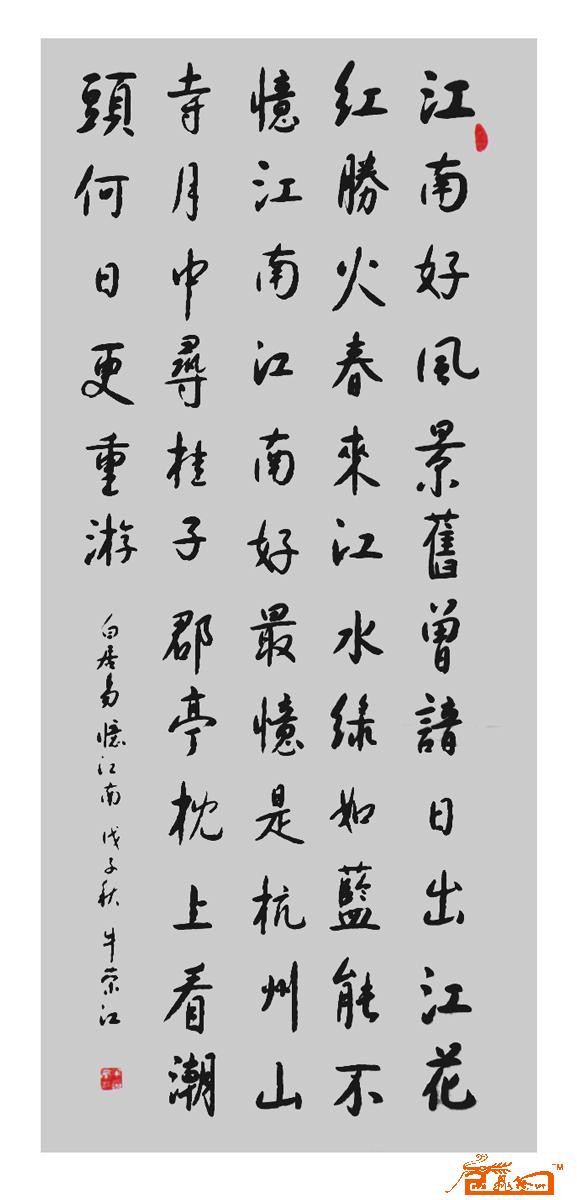 江南好風景舊曾諳日出江花
红勝火春來江水绿如藍能不
憶江南江南好最憶是杭州山
寺月中尋桂子郡亭枕上看潮
頭何日更重游
白居易憶江南 戊子秋 牛荣江